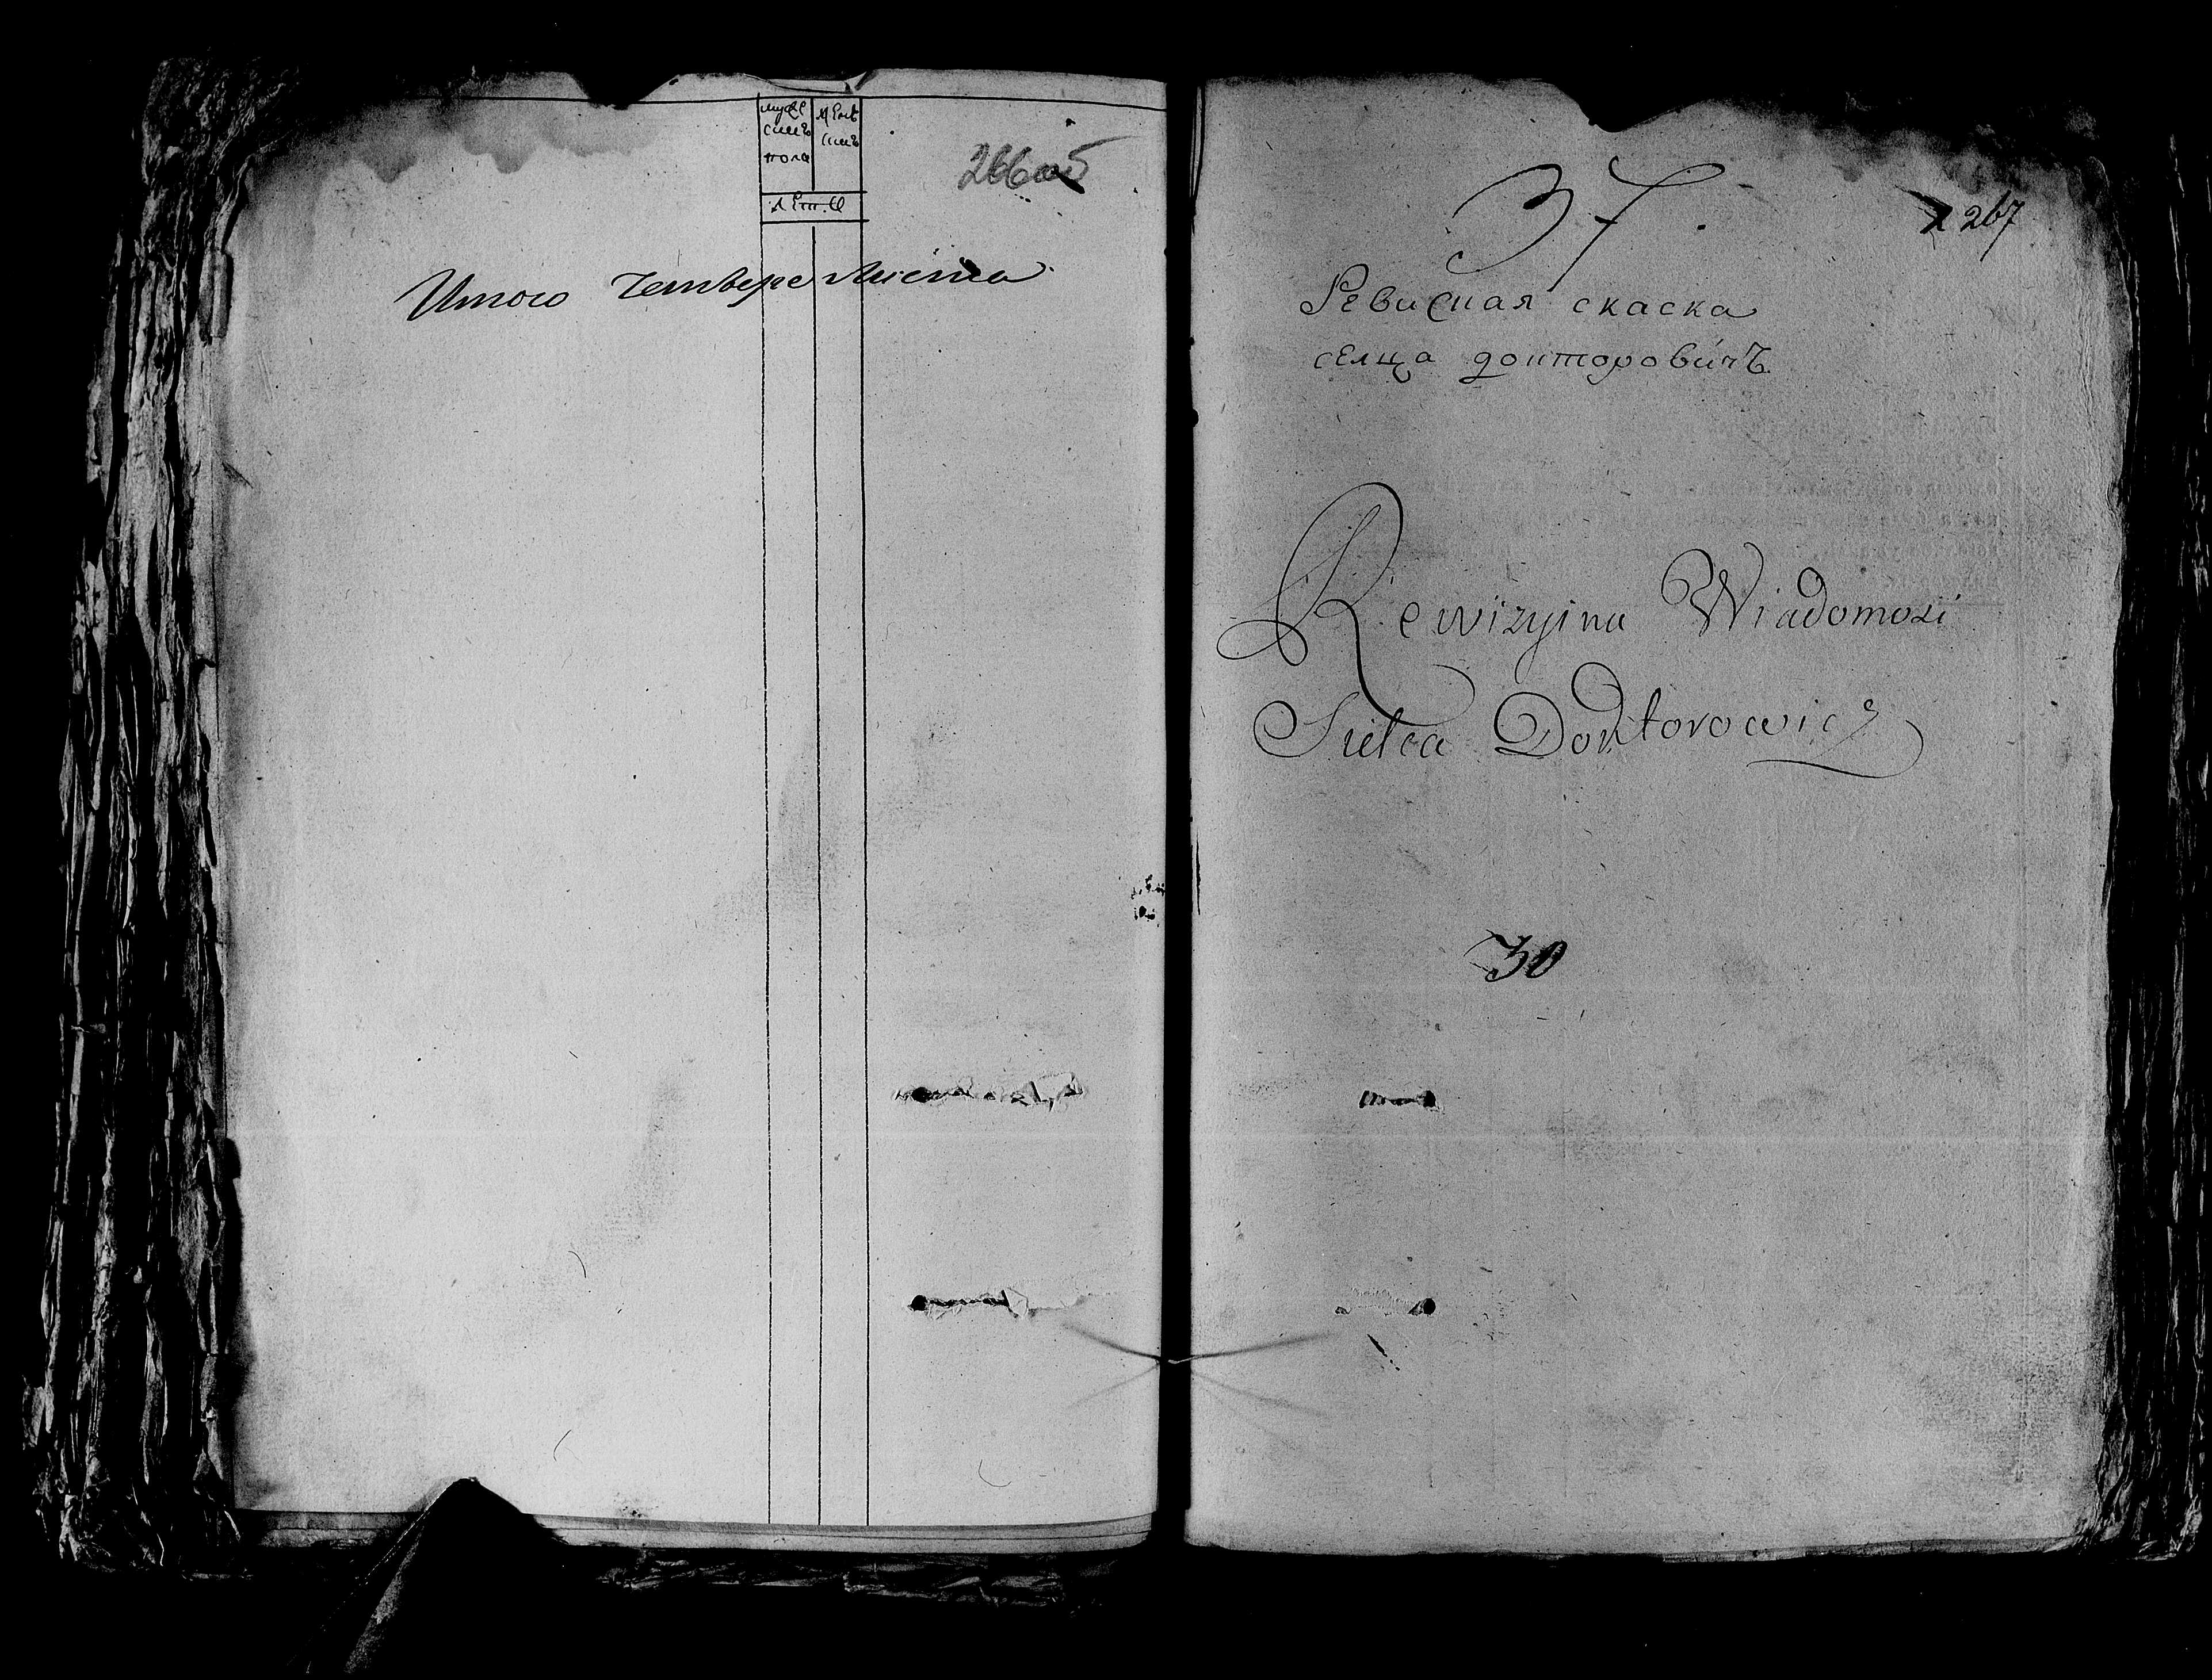 мужескъ
пола
женскъ
летa
266об
Итого четыре листа
37
267
Ревизная скаска
селца донторовичъ
Rewizyina Wiadomosć
Sielca Dontorowicz
30